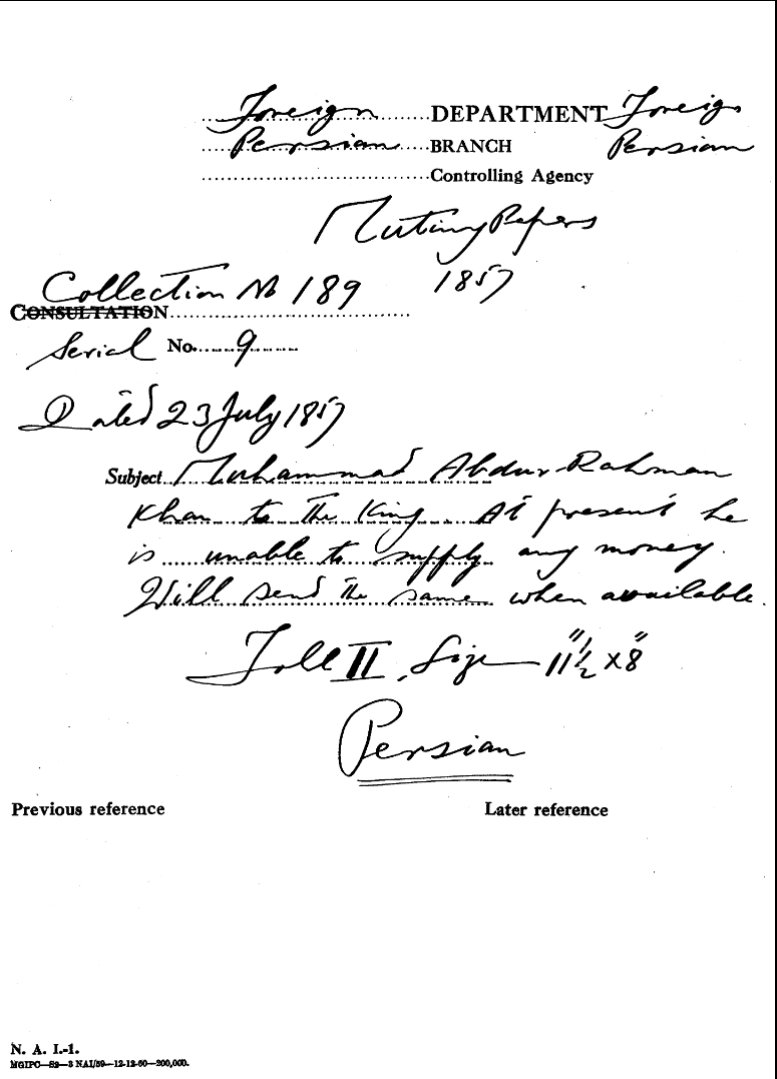 Foreign DEPARTMENT Foreign
Persian BRANCH Persian
Controlling Agency
Mutiny Papers
1857
Collection No 189
CONSULTATION
Serial No. 9
Dated 23 July 1857
Subject Muhammad Abdur Rahman
Khan to the King. At present he
is unable to supply any money.
Will send the same when available.
Foll II, Size 11½" x 8"
Persian
Previous reference Later reference
N. A. I.-1.
MGIPC—S2—3 NAI/59—12-12-60—200,000.